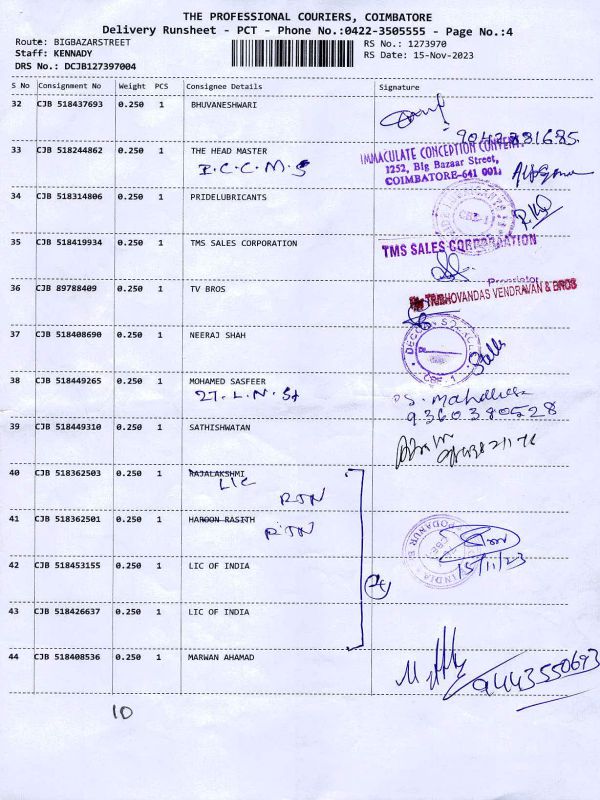 THE PROFESSIONAL COURIERS, COIMBATORE
Delivery Runsheet - PCT - Phone No.:0422-3505555 - Page No.:4
Route: BIGBAZARSTREET
RS No.: 1273970
Staff: KENNADY
RS Date: 15-Nov-2023
DRS No.: DCJB127397004
S No Consignment No Weight PCS Consignee Details Signature
32 CJB 518437693 0.250 1 BHUVANESHWARI
9042881685
33 CJB 518244862 0.250 1 THE HEAD MASTER
B.C.C.M.S
IMMACULATE CONCEPTION CONVENT
1252, Big Bazaar Street,
COIMBATORE-641 001.
34 CJB 518314806 0.250 1 PRIDELUBRICANTS
CBE-1
35 CJB 518419934 0.250 1 TMS SALES CORPORATION
TMS SALES CORPORATION
Proprietor
36 CJB 89788409 0.250 1 TV BROS
TRIBHOVANDAS VENDRAVAN & BROS
37 CJB 518408690 0.250 1 NEERAJ SHAH
CBE-1
Stella
38 CJB 518449265 0.250 1 MOHAMED SASFEER
27. L.N. St
9360380528
39 CJB 518449310 0.250 1 SATHISHWATAN
40 CJB 518362503 0.250 1 RAJALAKSHMI
LIC
RTN
41 CJB 518362501 0.250 1 HAROON RASITH
RTN
15/11/23
42 CJB 518453155 0.250 1 LIC OF INDIA
43 CJB 518426637 0.250 1 LIC OF INDIA
44 CJB 518408536 0.250 1 MARWAN AHAMAD
9443550693
10